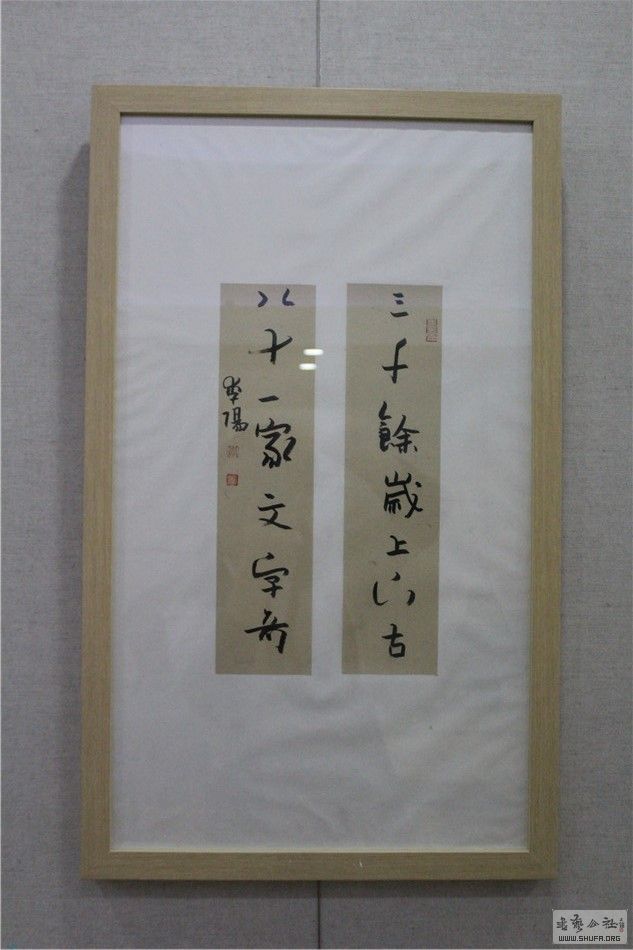 三千餘歲上下古
八十一家文字奇
WWW.SHUFA.ORG